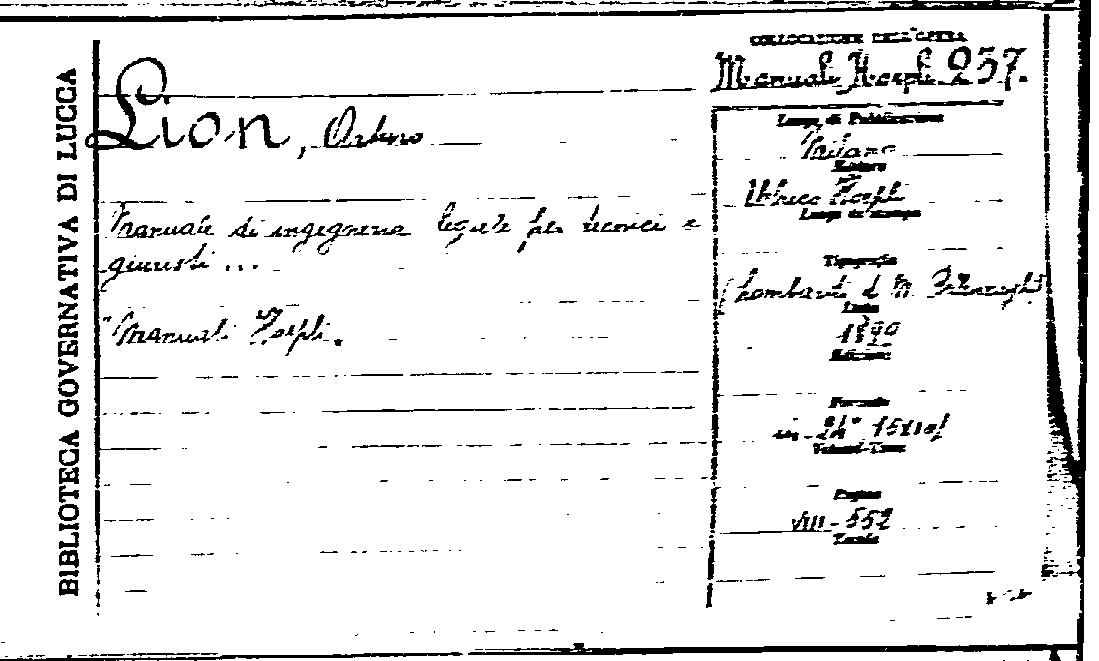 BIBLIOTECA GOVERNATIVA DI LUCCA
COLLOCAZIONE DELL'OPERA
Manuale Hoepli 257.
Lion, Arturo
Manuale di ingegneria legale per tecnici e
giuristi ...
Manuali Hoepli.
Luogo di Pubblicazione
Milano
Editore
Ulrico Hoepli
Luogo di stampa
Tipografia
Lombardi d M.
Data
1899
Edizione
Formato
in-24°
Volumi-Tomi
Pagine
VIII-552
Tavole